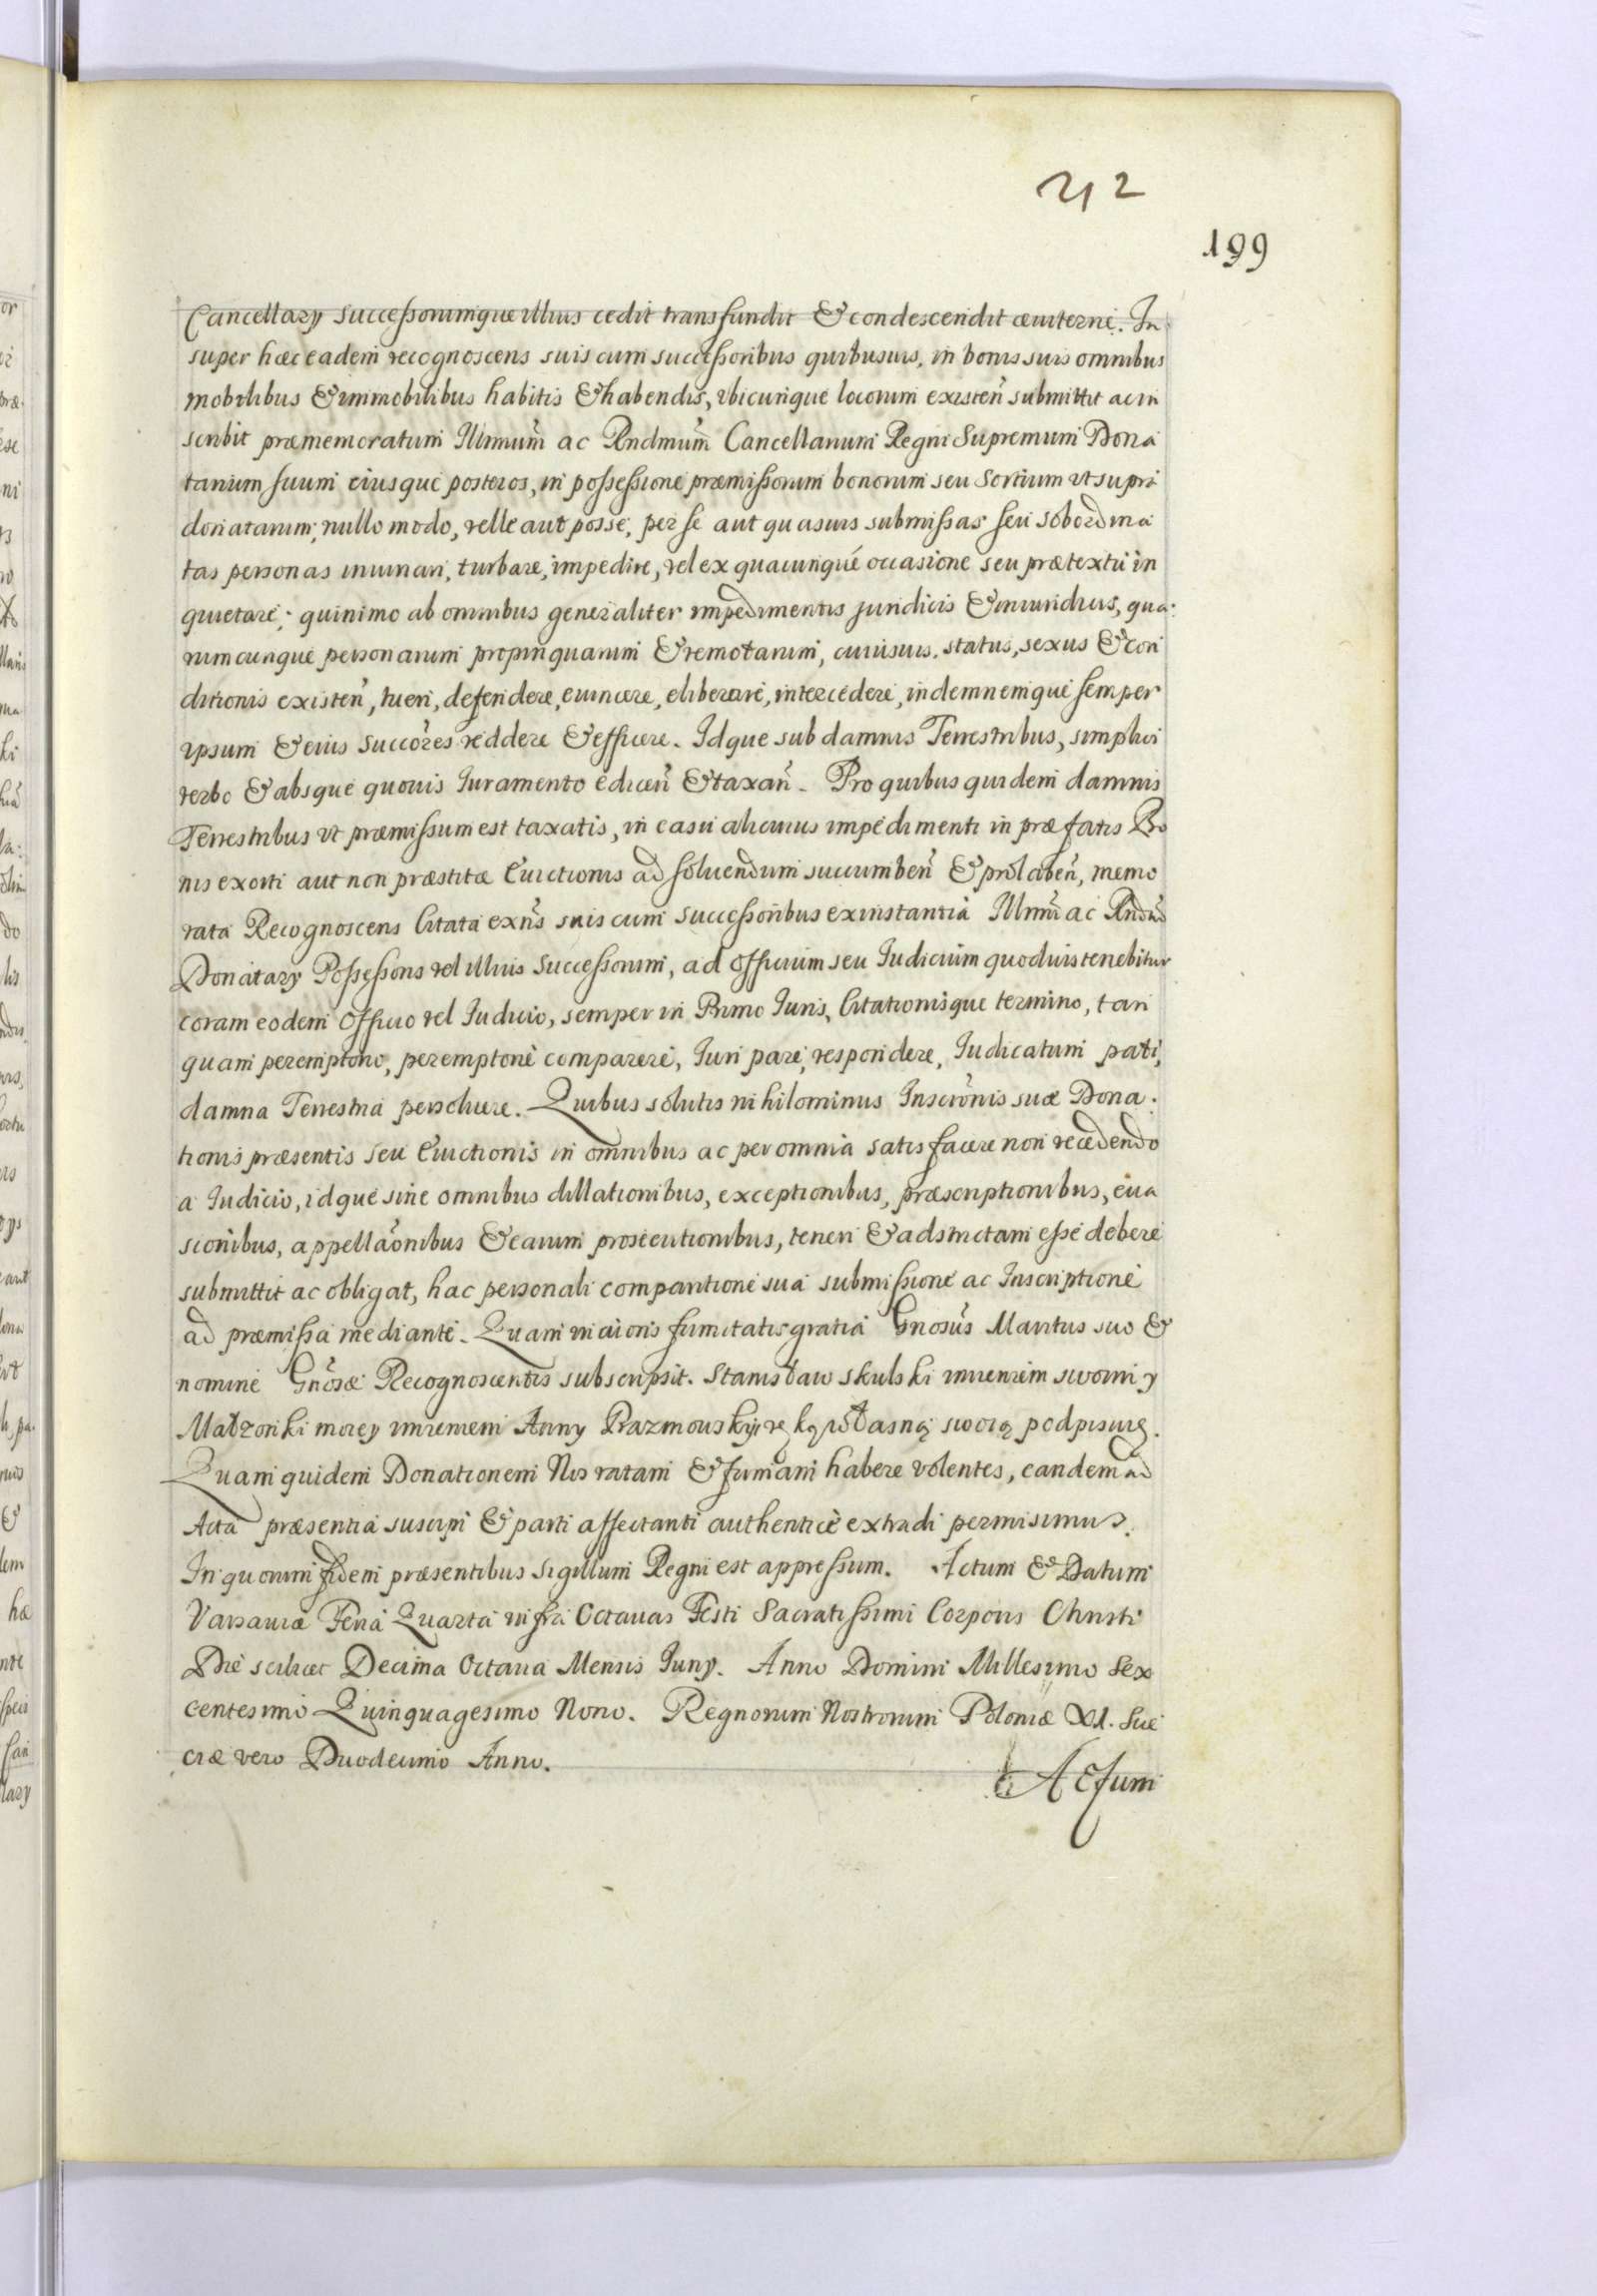 212
199
Cancellary Successorumque illius cedit transfundit & condescendit æviterne. In
super hæc eadem recognoscens suis cum successoribus quibusuis, in bonis suis omnibus
mobilibus & immobilibus habitis & habendis, vbicunque locorum existeñ submittit ac in
scribit præmemoratum Illmum̃ ac Rndmum̃ Cancellarium Regni Supremum Dona
tarium suum eiusque posteros, in possessione præmissorum bonorum seu Sortium vt supra
donatarum, nullo modo, velle aut posse, per se aut quasuis submissas seu sobordina
tas personas iniuriari, turbare, impedire, vel ex quacunque occasione seu prætextu in
quietare; quinimo ab omnibus generaliter impedimentis juridicis & iniuridicis, qua:
rumcunque personarum propinquarum & remotarum, cuiusuis. status, sexus & con
ditionis existeñ, tueri, defendere, euincere, eliberare, intercedere, indemnemque semper
ipsum & eius Succõres reddere & efficere. Idque sub damnis Terrestribus, simplici
verbo & absque quouis Iuramento ediceñ & taxañ. Pro quibus quidem damnis
Terrestribus vt præmissum est taxatis, in casu alicuius impedimenti in præfatis Bo
nis exorti aut non præstitæ Euictionis ad soluendum succumbeñ & prolabeñ, memo
rata Recognoscens Citata exñs suis cum successoribus ex instantia Illmi ac Rndmi
Donatary Possessoris vel illius Successorum, ad Officium seu Iudicium quoduis tenebitur
coram eodem Officio vel Iudicio, semper in Primo Iuris, Citationisque termino, tan
quam peremptorio, peremptorie comparere, Iuri pare, respondere, Iudicatum pati,
damna Terrestria persoluere. Quibus solutis nihilominus Inscrõnis suæ Dona:
tionis præsentis seu Euictionis in omnibus ac per omnia satisfacere non recedendo
a Iudicio, idque sine omnibus dillationibus, exceptionibus, præscriptionibus, eua
sionibus, appellãonibus & earum prosecutionibus, teneri & adstrictam esse debere
submittit ac obligat, hac personali comparitione sua submissione ac Inscriptione
ad præmissa mediante. Quam maioris firmitatis gratia Gnosũs Maritus suo &
nomine Gnõsæ Recognoscentis subscripsit. Stanisław Skulski imieniem swoim y
Małżonki moiey imieniem Anny Prazmouskiy ręką własną swoią podpisuię.
Quam quidem Donationem Nos ratam & firmam habere volentes, eandem ad
Acta præsentia suscipi & parti affectanti authentice extradi permisimus.
In quorum fidem præsentibus Sigillum Regni est appressum. Actum & Datum
Varsauiæ Feria Quarta infra Octauas Festi Sacratissimi Corporis Christi
Die scilicet Decima Octaua Mensis Iuny. Anno Domini Millesimo Sex
centesimo Quinquagesimo Nono. Regnorum Nostrorum Poloniæ XI. Sue
ciæ vero Duodecimo Anno.
Actum